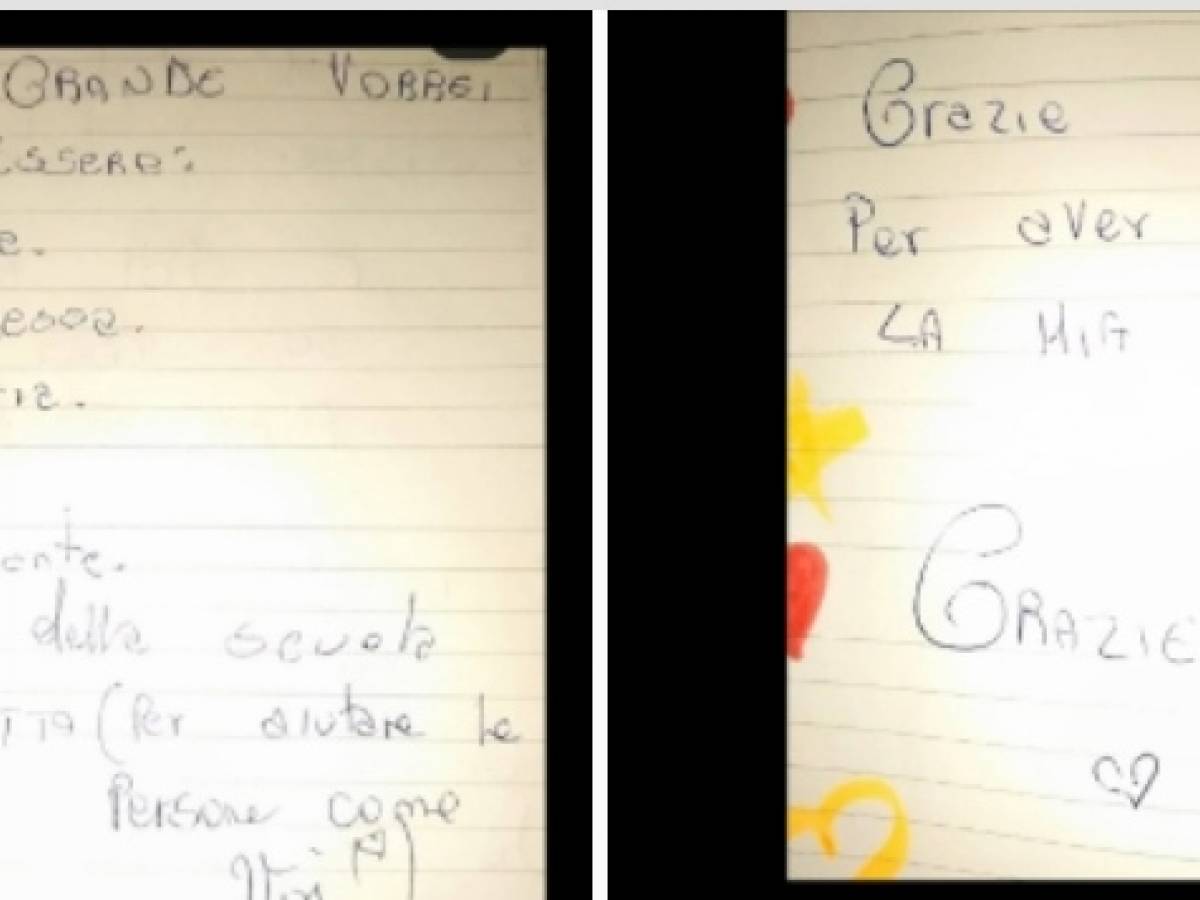 GRANDE VORREI
ESSERE:
e.
essa.
ria.
ante.
della scuola
TTO (Per aiutare le
Persone come
Voi )
Grazie
Per aver
LA MIA
GRAZIE